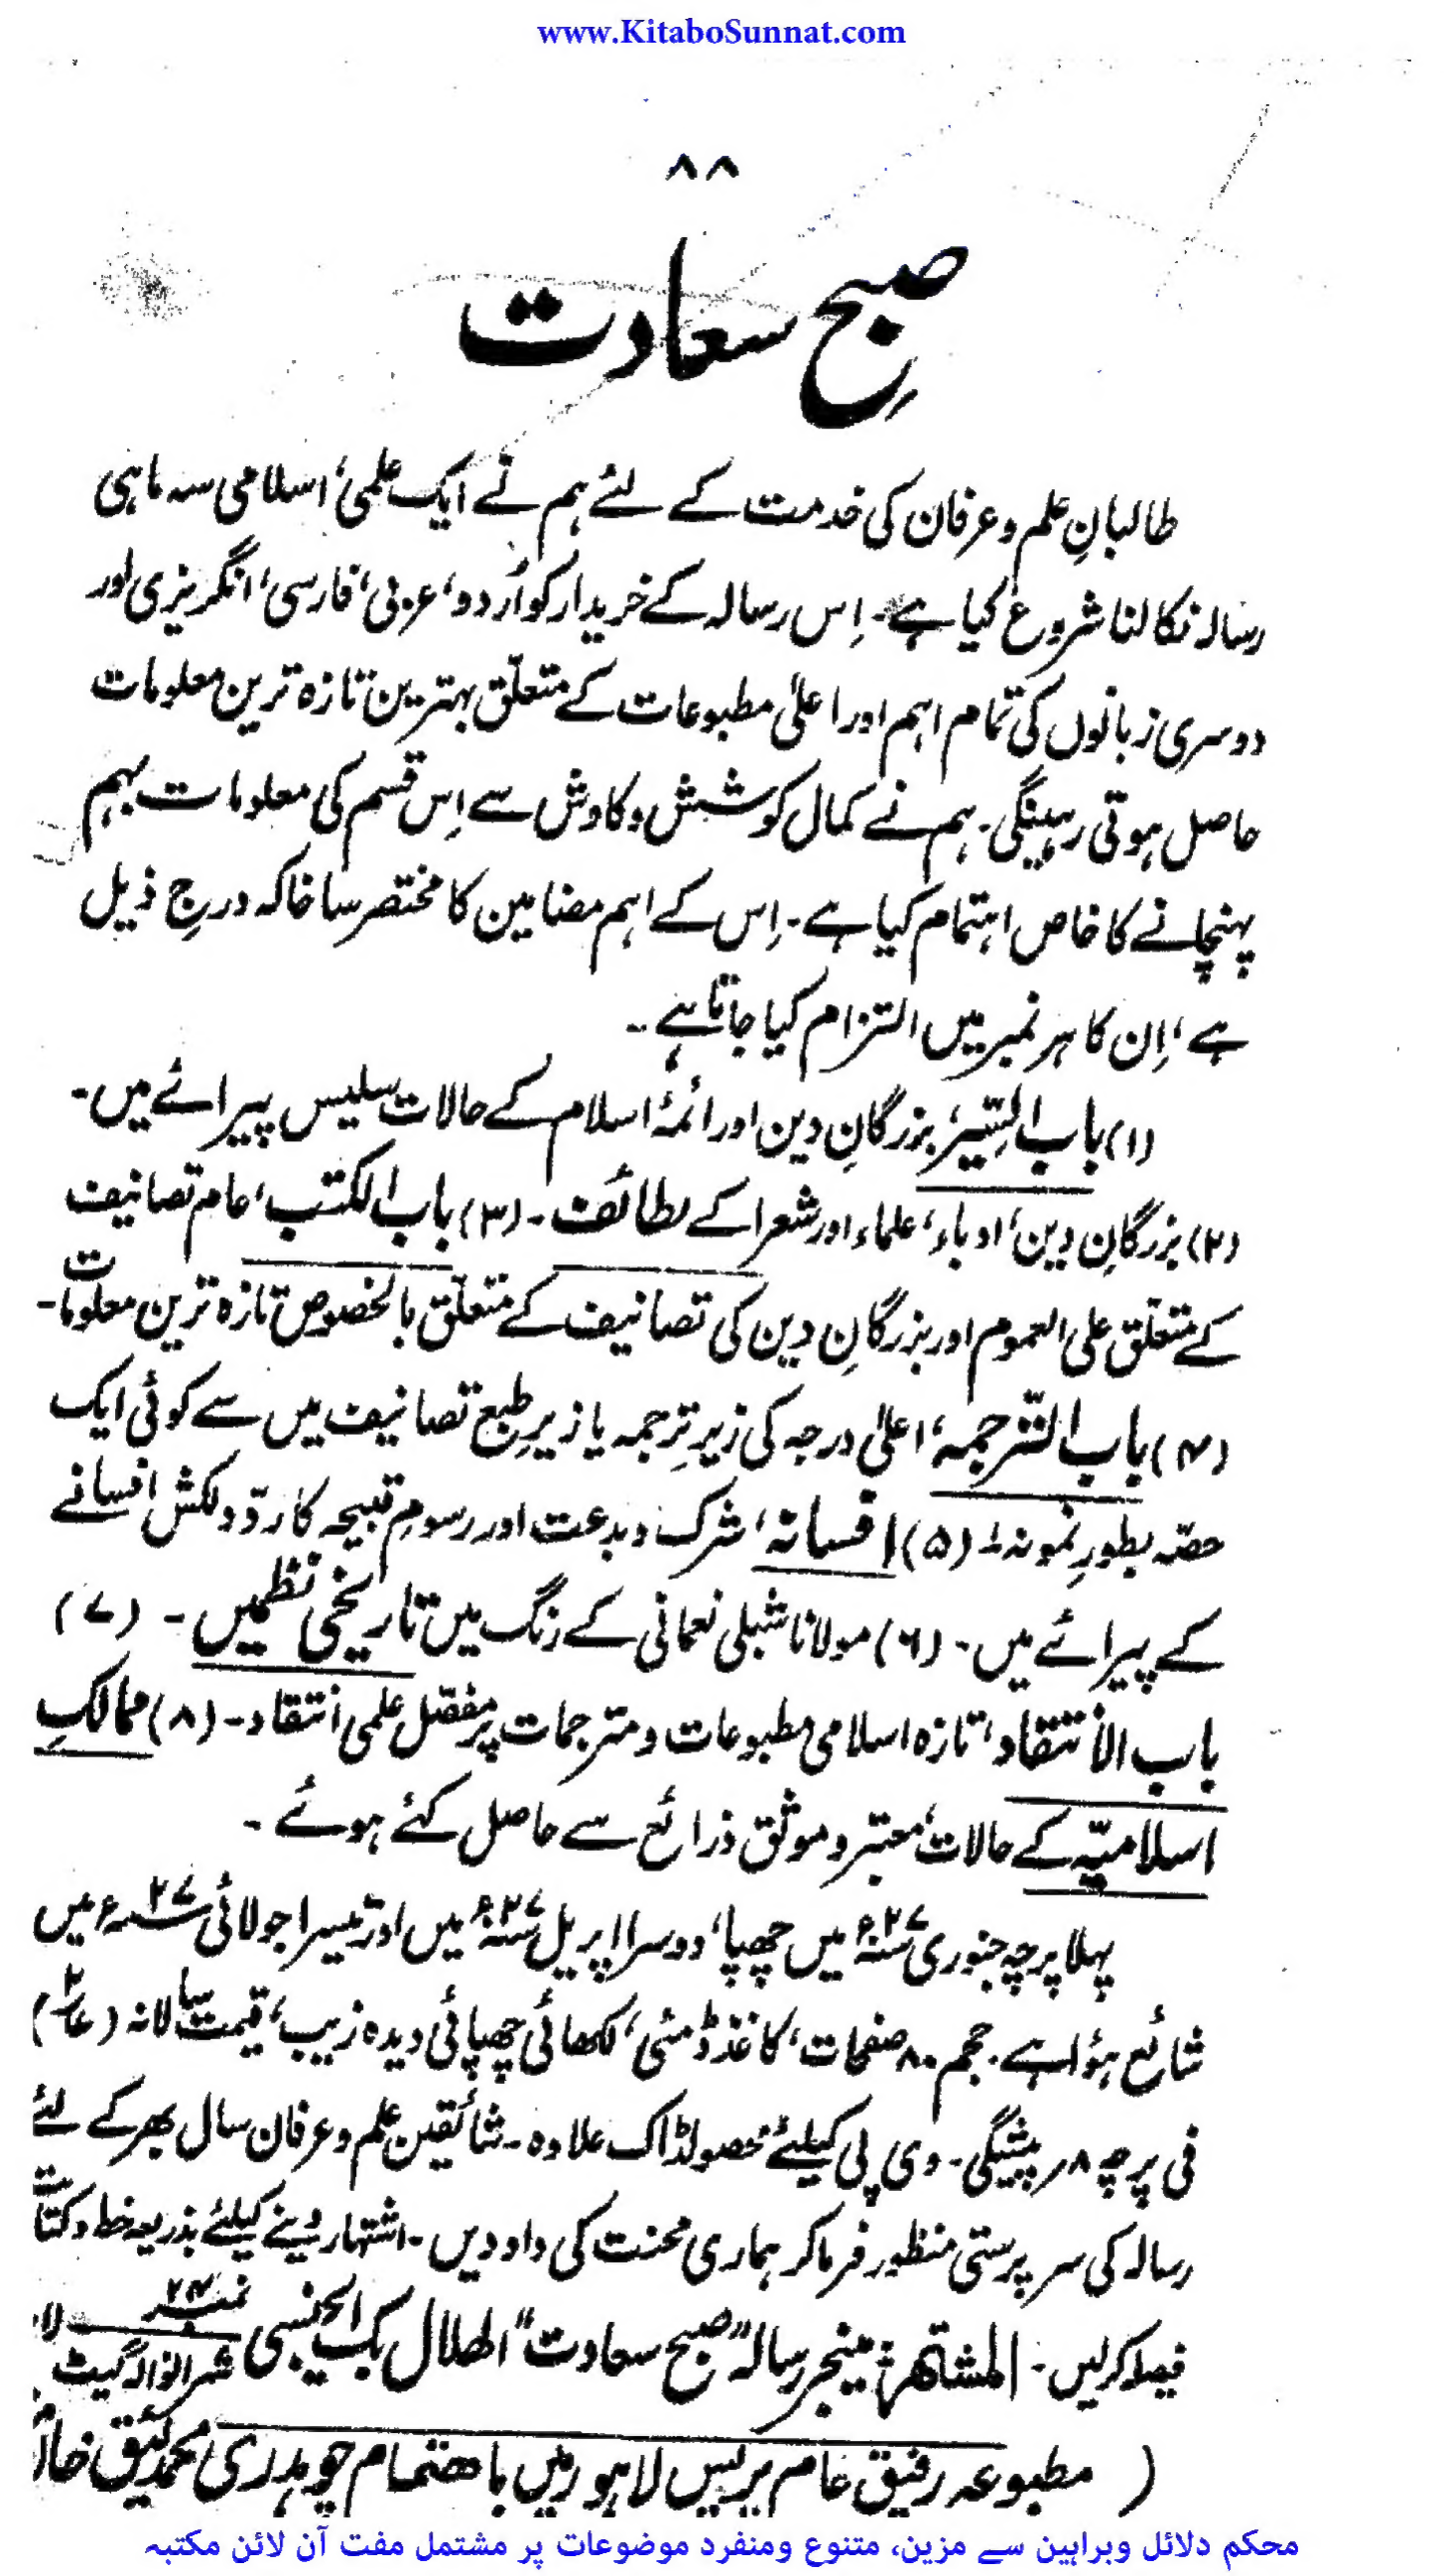 www.KitaboSunnat.com
۸۸
صبحِ سعادت
طالبانِ علم و عرفان کی خدمت کے لئے ہم نے ایک علمی، اسلامی سہ ماہی
رسالہ نکالنا شروع کیا ہے۔ اِس رسالہ کے خریدار کو اُردو، عربی، فارسی، انگریزی اور
دوسری زبانوں کی تمام اہم اور اعلیٰ مطبوعات کے متعلّق بہترین تازہ ترین معلومات
حاصل ہوتی رہینگی۔ ہم نے کمال کوشش و کاوش سے اِس قسم کی معلومات بہم
پہنچانے کا خاص اہتمام کیا ہے۔ اِس کے اہم مضامین کا مختصر سا خاکہ درجِ ذیل
ہے، اِن کا ہر نمبر میں التزام کیا جاتا ہے۔
(۱) باب السِّیَر، بزرگانِ دین اور ائمۂ اسلام کے حالات سلیس پیرائے میں۔
(۲) بزرگانِ دین، ادباء، علماء اور شعرا کے لطائف۔ (۳) باب الکتب، عام تصانیف
کے متعلّق علی العموم اور بزرگانِ دین کی تصانیف کے متعلّق بالخصوص تازہ ترین معلومات۔
(۴) باب التّرجمہ، اعلیٰ درجہ کی زیرِ ترجمہ یا زیرِ طبع تصانیف میں سے کوئی ایک
حصّہ بطورِ نمونہ۔ (۵) افسانہ، شرک و بدعت اور رسومِ قبیحہ کا ردّ دلکش افسانے
کے پیرائے میں۔ (۶) مولانا شبلی نعمانی کے رنگ میں تاریخی نظمیں۔ (۷)
باب الأنتقاد، تازہ اسلامی مطبوعات و مترجمات پر مفصّل علمی انتقاد۔ (۸) ممالکِ
اسلامیّہ کے حالات، معتبر و موثق ذرائع سے حاصل کئے ہوئے۔
پہلا پرچہ جنوری ۲۷ء میں چھپا، دوسرا اپریل ۲۷ء میں اور تیسرا جولائی ۲۷ء میں
شائع ہؤا ہے۔ حجم ۸۰ صفحات، کاغذ ڈمئی، لکھائی چھپائی دیدہ زیب، قیمت سالانہ
فی پرچہ ۸ر پیشگی۔ وی پی کیلئے محصولڈاک علاوہ۔ شائقین علم و عرفان سال بھر کے لئے
رسالہ کی سرپرستی منظور فرما کر ہماری محنت کی داد دیں۔ اشتہار دینے کیلئے بذریعہ خط و کتابت
فیصلہ کرلیں۔ المشتھر: مینجر رسالہ "صبح سعادت" الھلال بک ایجنسی نمبر ۲۴ شیرانوالہ گیٹ
( مطبوعہ رفیق عام پریس لاہور میں باھتمام چوہدری محمد
محکم دلائل وبراہین سے مزین، متنوع ومنفرد موضوعات پر مشتمل مفت آن لائن مکتبہ